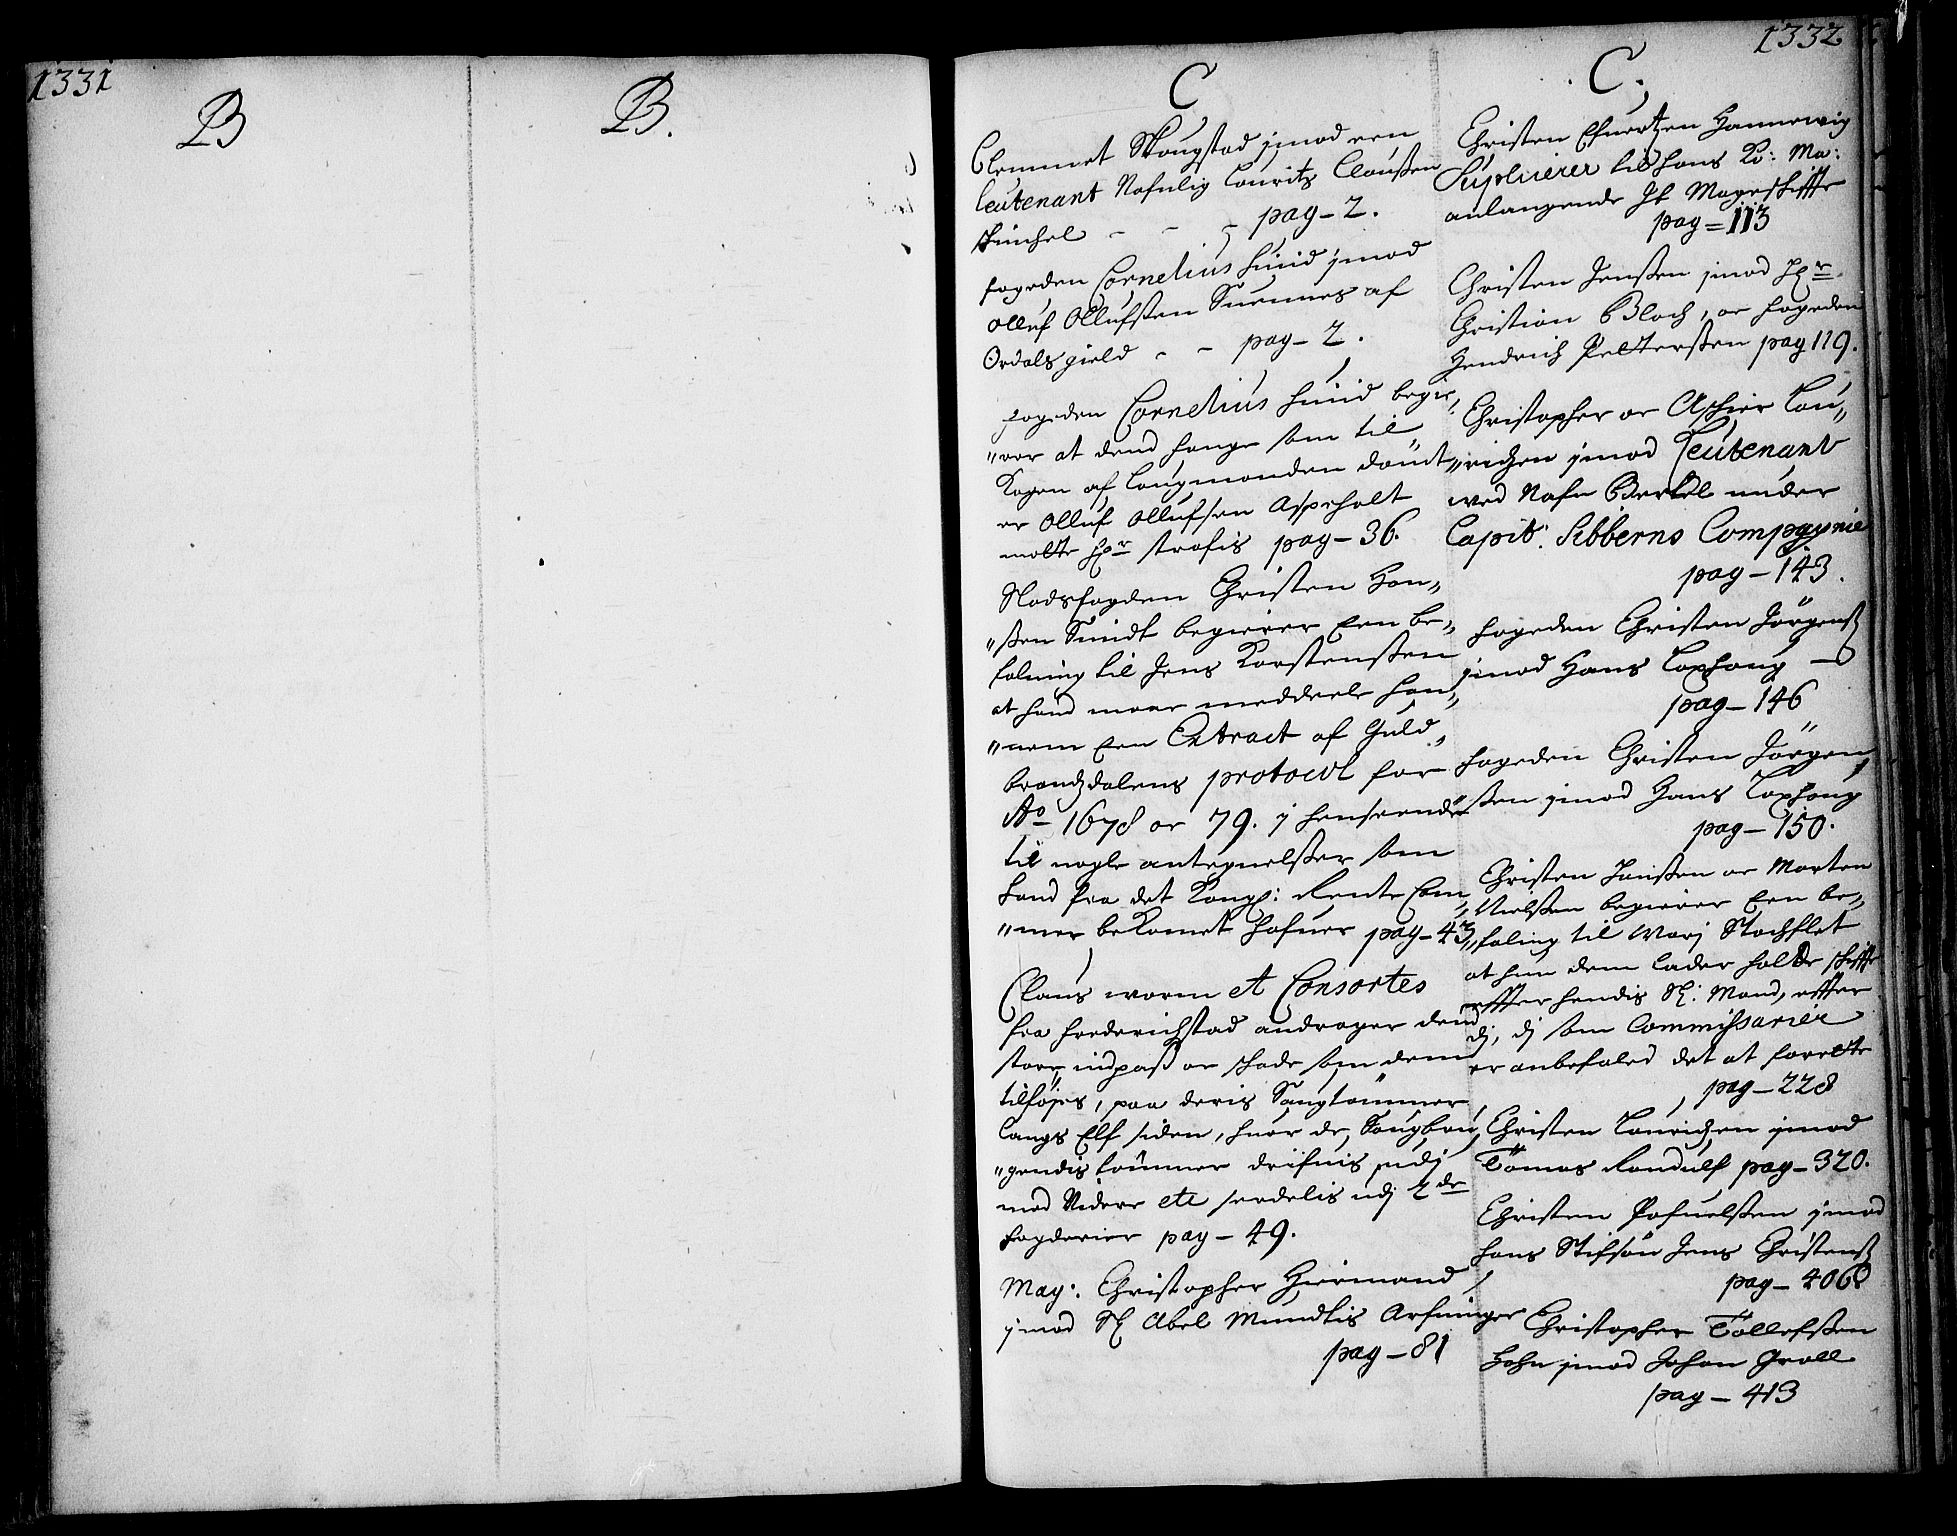 1331
B
B.
1332
C
Clemmet Skougstad jmod een
Leutenant Nafnlig Lauritz Claussen
skinchel - - - pag - 2.
fogeden Cornelius Hund jmod
olluf Ollufsen Suennes af
Ordals gield - - pag - 2.
fogeden Cornelius Hund begie„
„rer at dend fange som til
Kagen af Laugmanden dömt
er Olluf Ollufsen Aspeholt
motte her straffis pag - 36.
Slodsfogden Christen Han„
„ßen Smidt begierer Een be„
falning til Jens Karstenßen
at hand maa meddeele han„
„nem Een Extract af Guld„
brandzdalens protocol for
Ao 1678 oc 79. i henseende
til nogle antegnelßer som
hand fra det Kongl: Rente Cam„
„mer beKomet hafuer pag - 43
Claus worm et Consortes
fra friderichstad andrager dend
stoor indpaß oc skade som dem
tilföjes, paa deris Saugtömmer
langs Elf siden, huor de Saugbru„
„gendis tömmer drifuis udj
med Videre etc serdelis udj 2de
fogderier pag - 49.
May: Christopher Hiermand
jmod Sl Abel Mundtis Arfuinger
pag - 81
C.
Christen Efuertzen Hannewig
Suplicerer til hans Ko: Ma:
anlangende Jt Mageskiffte
pag = 113
Christen Jenßen jmod Hr
Christian Bloch, oc fogeden
Hendrich Pettersßen pag 119.
Christopher oc Aschier Lau„
„ritzen jmod Leutenant
ved Nafn Bertel under
Capit: Sibberns Compagnie
pag - 143.
fogeden Christen Jörgens
jmod Hans Laxhaug -
pag - 146
fogeden Christen Jörgen„
„ßen jmod Hans Laxhaug
pag - 150.
Christen Janßen oc Morten
Nielßen begierer Een be„
„faling til Marj Stochflet
at hun dem lader holde skiffte
effter hendis Sl: Mand, effter
dj, dj som Commißarier
er anbefaled det at forrette
pag - 228
Christen Lauritzen jmod
Tömas Randulf pag - 320.
Christen Pofuelßen jmod
hans Stifsön Jens Christens
pag - 406
Christopher Töllefßen
Hohn jmod Johan Groll
pag - 413